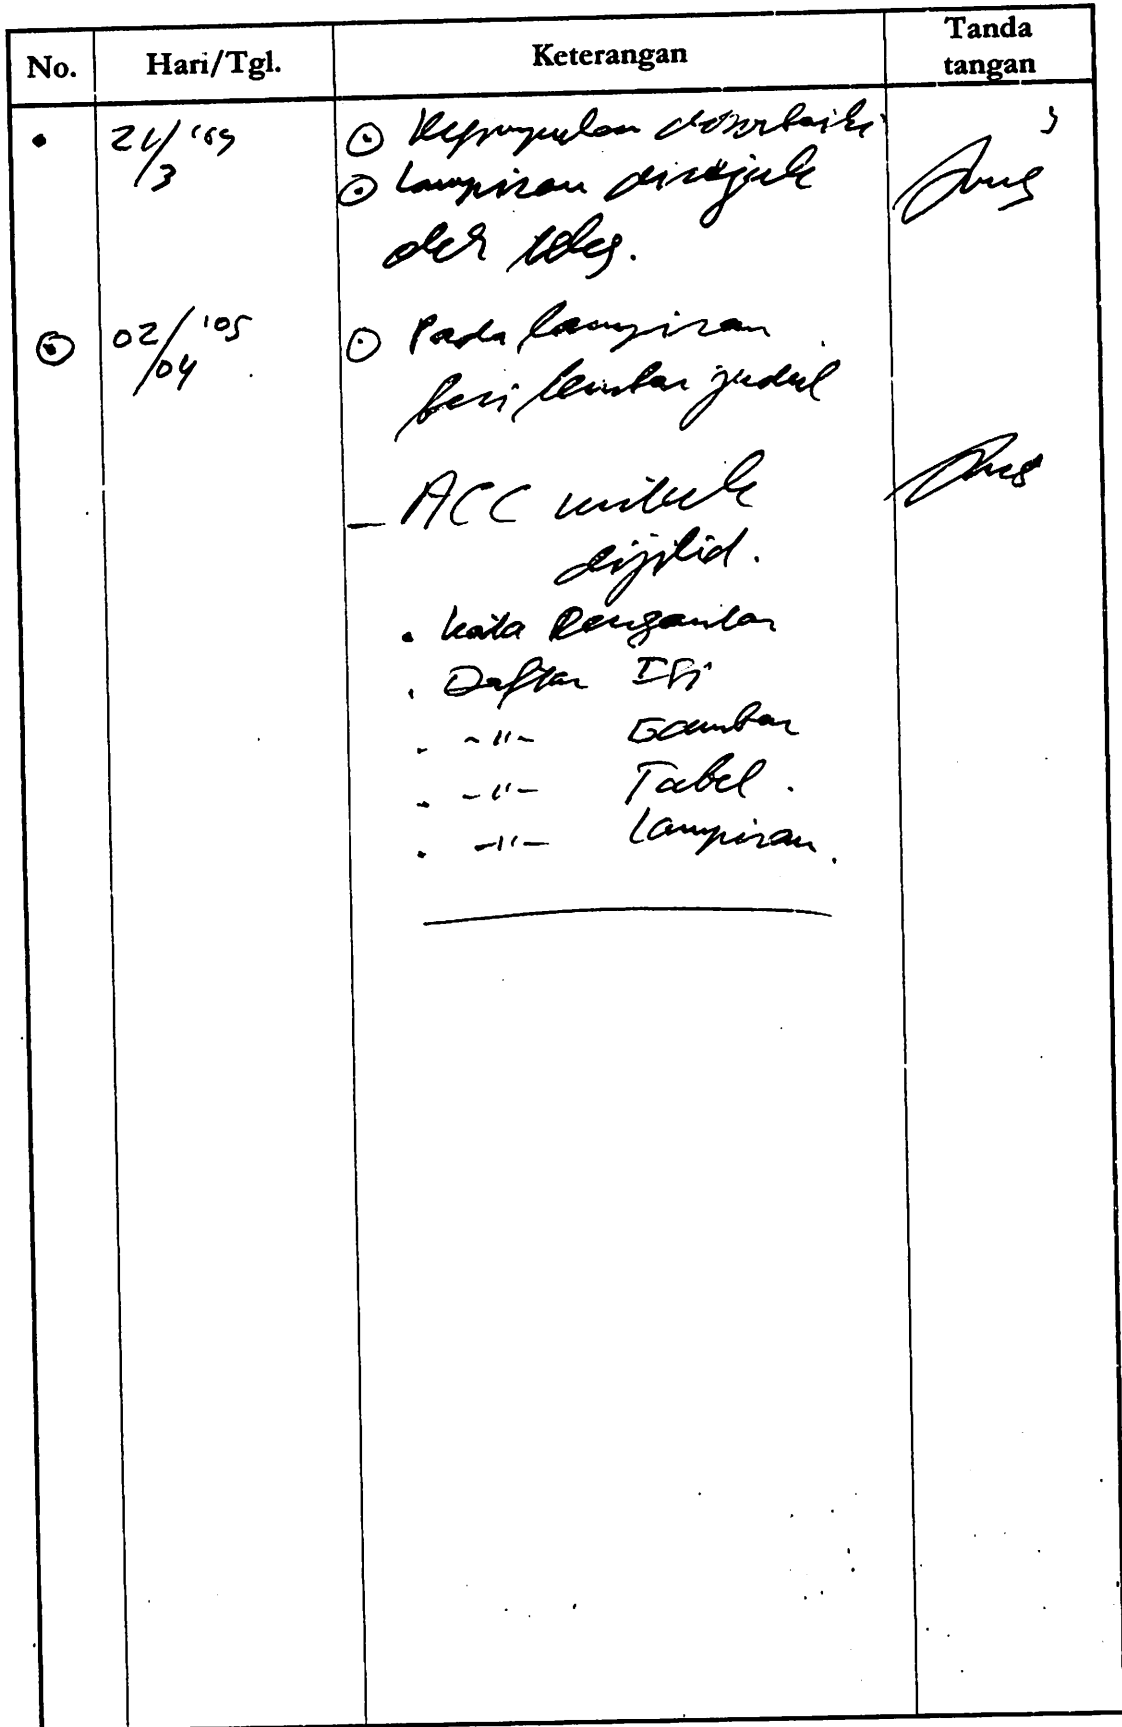 No. Hari/Tgl. Keterangan Tanda tangan
Kesimpulan diperbaiki
Lampiran dirujuk
02/04 '05
Pada lampiran
beri lembar judul
- ACC untuk
dijilid.
. Kata Pengantar
. Daftar Isi
. -"- Gambar
. -"- Tabel.
. -"- Lampiran.